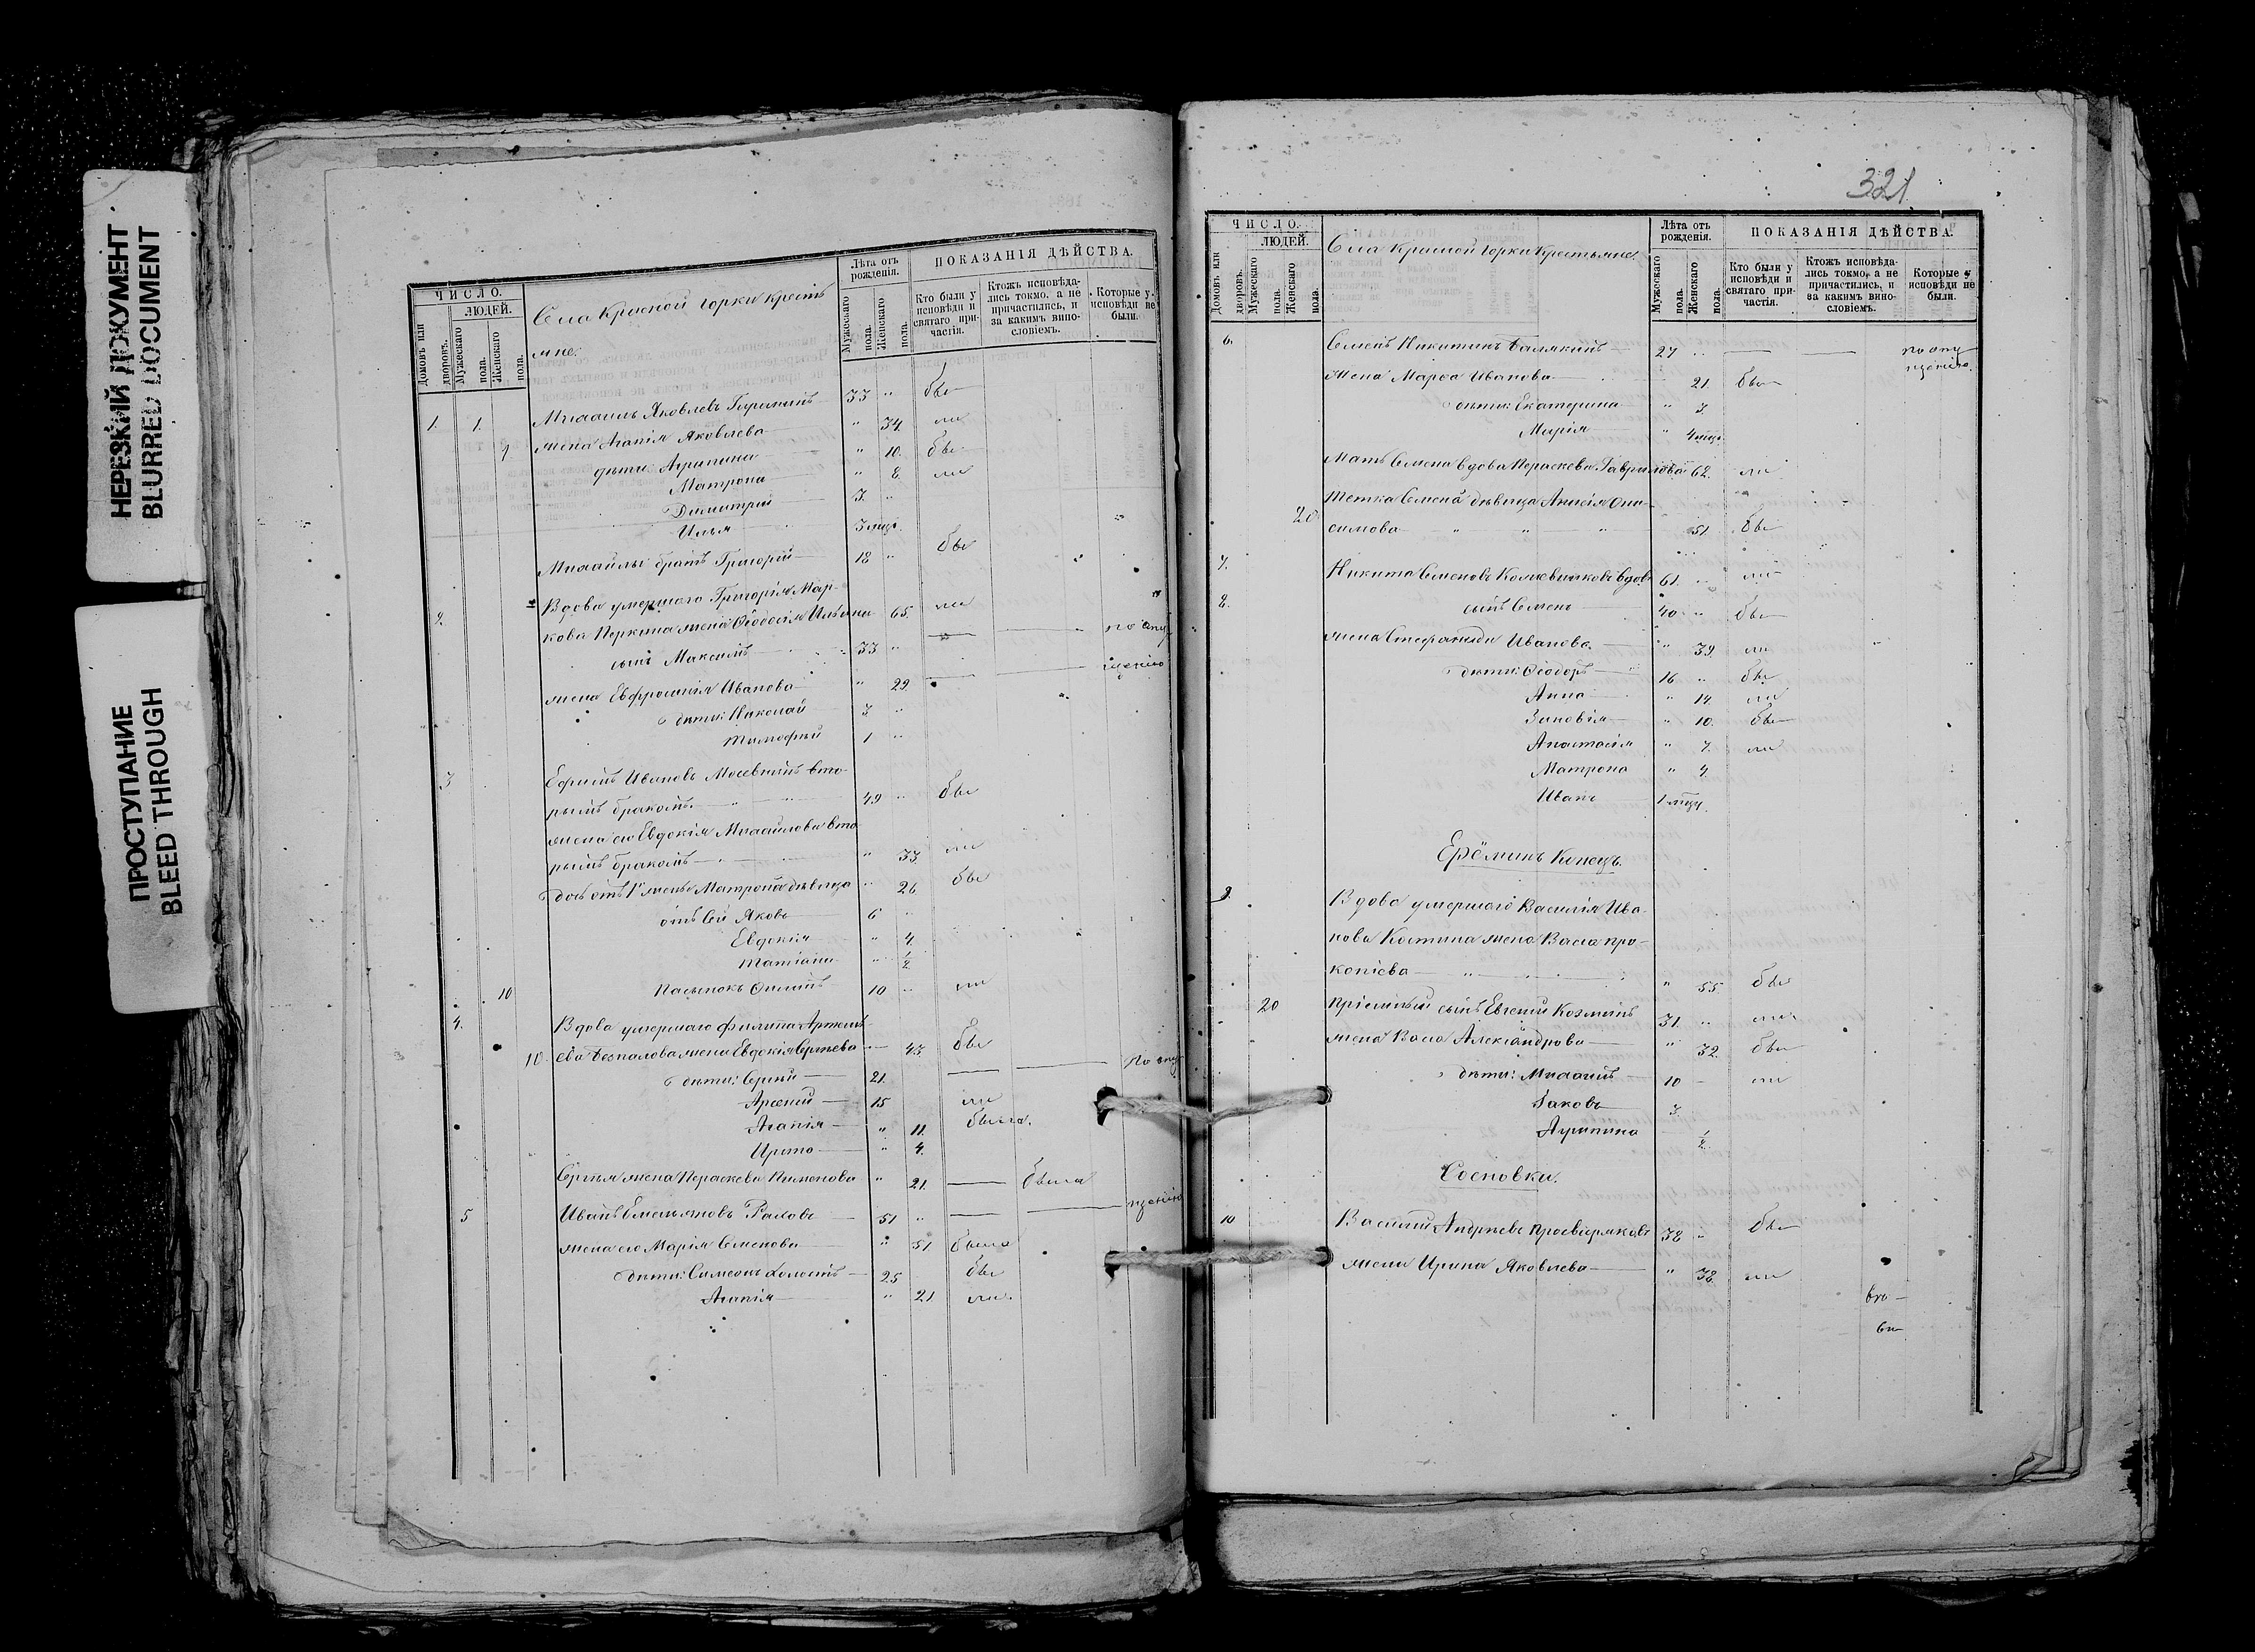 НЕРЕЗКИЙ ДОКУМЕНТ
BLURRED DOCUMENT
ПРОСТУПАНИЕ
BLEED THROUGH
ЧИСЛО.
ЛЮДЕЙ.
Домовъ или дворовъ.
Мужескаго пола.
Женскаго пола.
Села Красной Горки кресть
яне.
Лѣта отъ рожденія.
Мужескаго пола.
Женскаго пола.
ПОКАЗАНІЯ ДѢЙСТВА.
Кто были у исповѣди и святаго при-частія.
Ктожъ исповѣда-лись токмо, а не причастились, и за какимъ вино-словіемъ.
Которые у исповѣди не были.
1. 1. Михаилъ Яковлевъ 33 " бы
1 жена Агапія Яковлева " 34. ли
дѣти: Агрипина " 10. бы
Матрона " 8. ли
Димитрій 3. "
Илья 3 мца.
Михаилы братъ Григорій 18 " бы
2. Вдова умершаго Григорія Мар-
кова Перкина жена Ѳеодосія Ильина 65. ли
сынъ Максимъ 33 " — — по опу
жена Евфросинія Иванова " 29. — — щенію
дѣти: Николай 3 "
Тимофей 1 "
3 Ефимъ Ивановъ Мосевнинъ вто-
рымъ бракомъ " " 49 " бы
жена его Евдокія Михайлова вто
рымъ бракомъ " " 33. ли
дочь отъ 1й жены Матрона дѣвица " 26 бы
отъ сей Яковъ 6 "
Евдокія " 4.
Татіана " 1/2
10 Пасынокъ 10 " ли
4. Вдова умершаго Филипа Артемь-
10 ева Безпалова жена Евдокія Сергѣева 43. бы
дѣти: Сергѣй 21. — — по опу
Арсеній 15 ли
Агапія " 11. была.
Ирина " 4.
Сергѣя жена Параскева Пименова " 21. — была
5 Иванъ Емельяновъ 51 " — — щенію
жена его Марія Семенова " 51 была
дѣти: Симеонъ холостъ 25 бы
Агапія " 21 ли.
321
ЧИСЛО.
ЛЮДЕЙ.
Домовъ или дворовъ.
Мужескаго пола.
Женскаго пола.
Села Красной Горки Крестьяне.
Лѣта отъ рожденія.
Мужескаго пола.
Женскаго пола.
ПОКАЗАНІЯ ДѢЙСТВА.
Кто были у исповѣди и святаго при-частія.
Ктожъ исповѣда-лись токмо, а не причастились, и за какимъ вино-словіемъ.
Которые у исповѣди не были.
6. Семенъ Никитинъ Балякинъ 27 " — — по опу
щенію.
жена Марѳа Иванова 21. бы
дѣти: Екатерина " 3.
Марія " 4 мца.
Мать Семена вдова Параскева Гаврилова 62. ли
Тетка Семена дѣвица Анисія Они-
20 симова " " " 51. бы
7. Никита Семеновъ вдовъ 61. " ли
8. сынъ Семенъ 40 " бы
жена Стефанида Иванова " 39. ли
дѣти: Ѳеодоръ 16 " бы
Анна " 14. ли
Зиновія " 10. бы
Анастасія " 7. ли
Матрона " 4.
Иванъ 1 мца.
Ерёминъ Конецъ.
9. Вдова умершаго Василія Ива-
нова Костина жена Васса Про-
копіева " " " 55. бы
20 Пріемный сынъ Евгеній Козминъ 31. " ли
жена Васса Александрова " 32. бы
дѣти: Михаилъ 10 — ли
Іаковъ 3.
Агрипина 1/2.
Сосновки.
10 Василій Андреевъ Просвирняковъ 38 " бы
жена Ирина Яковлева " 38. ли